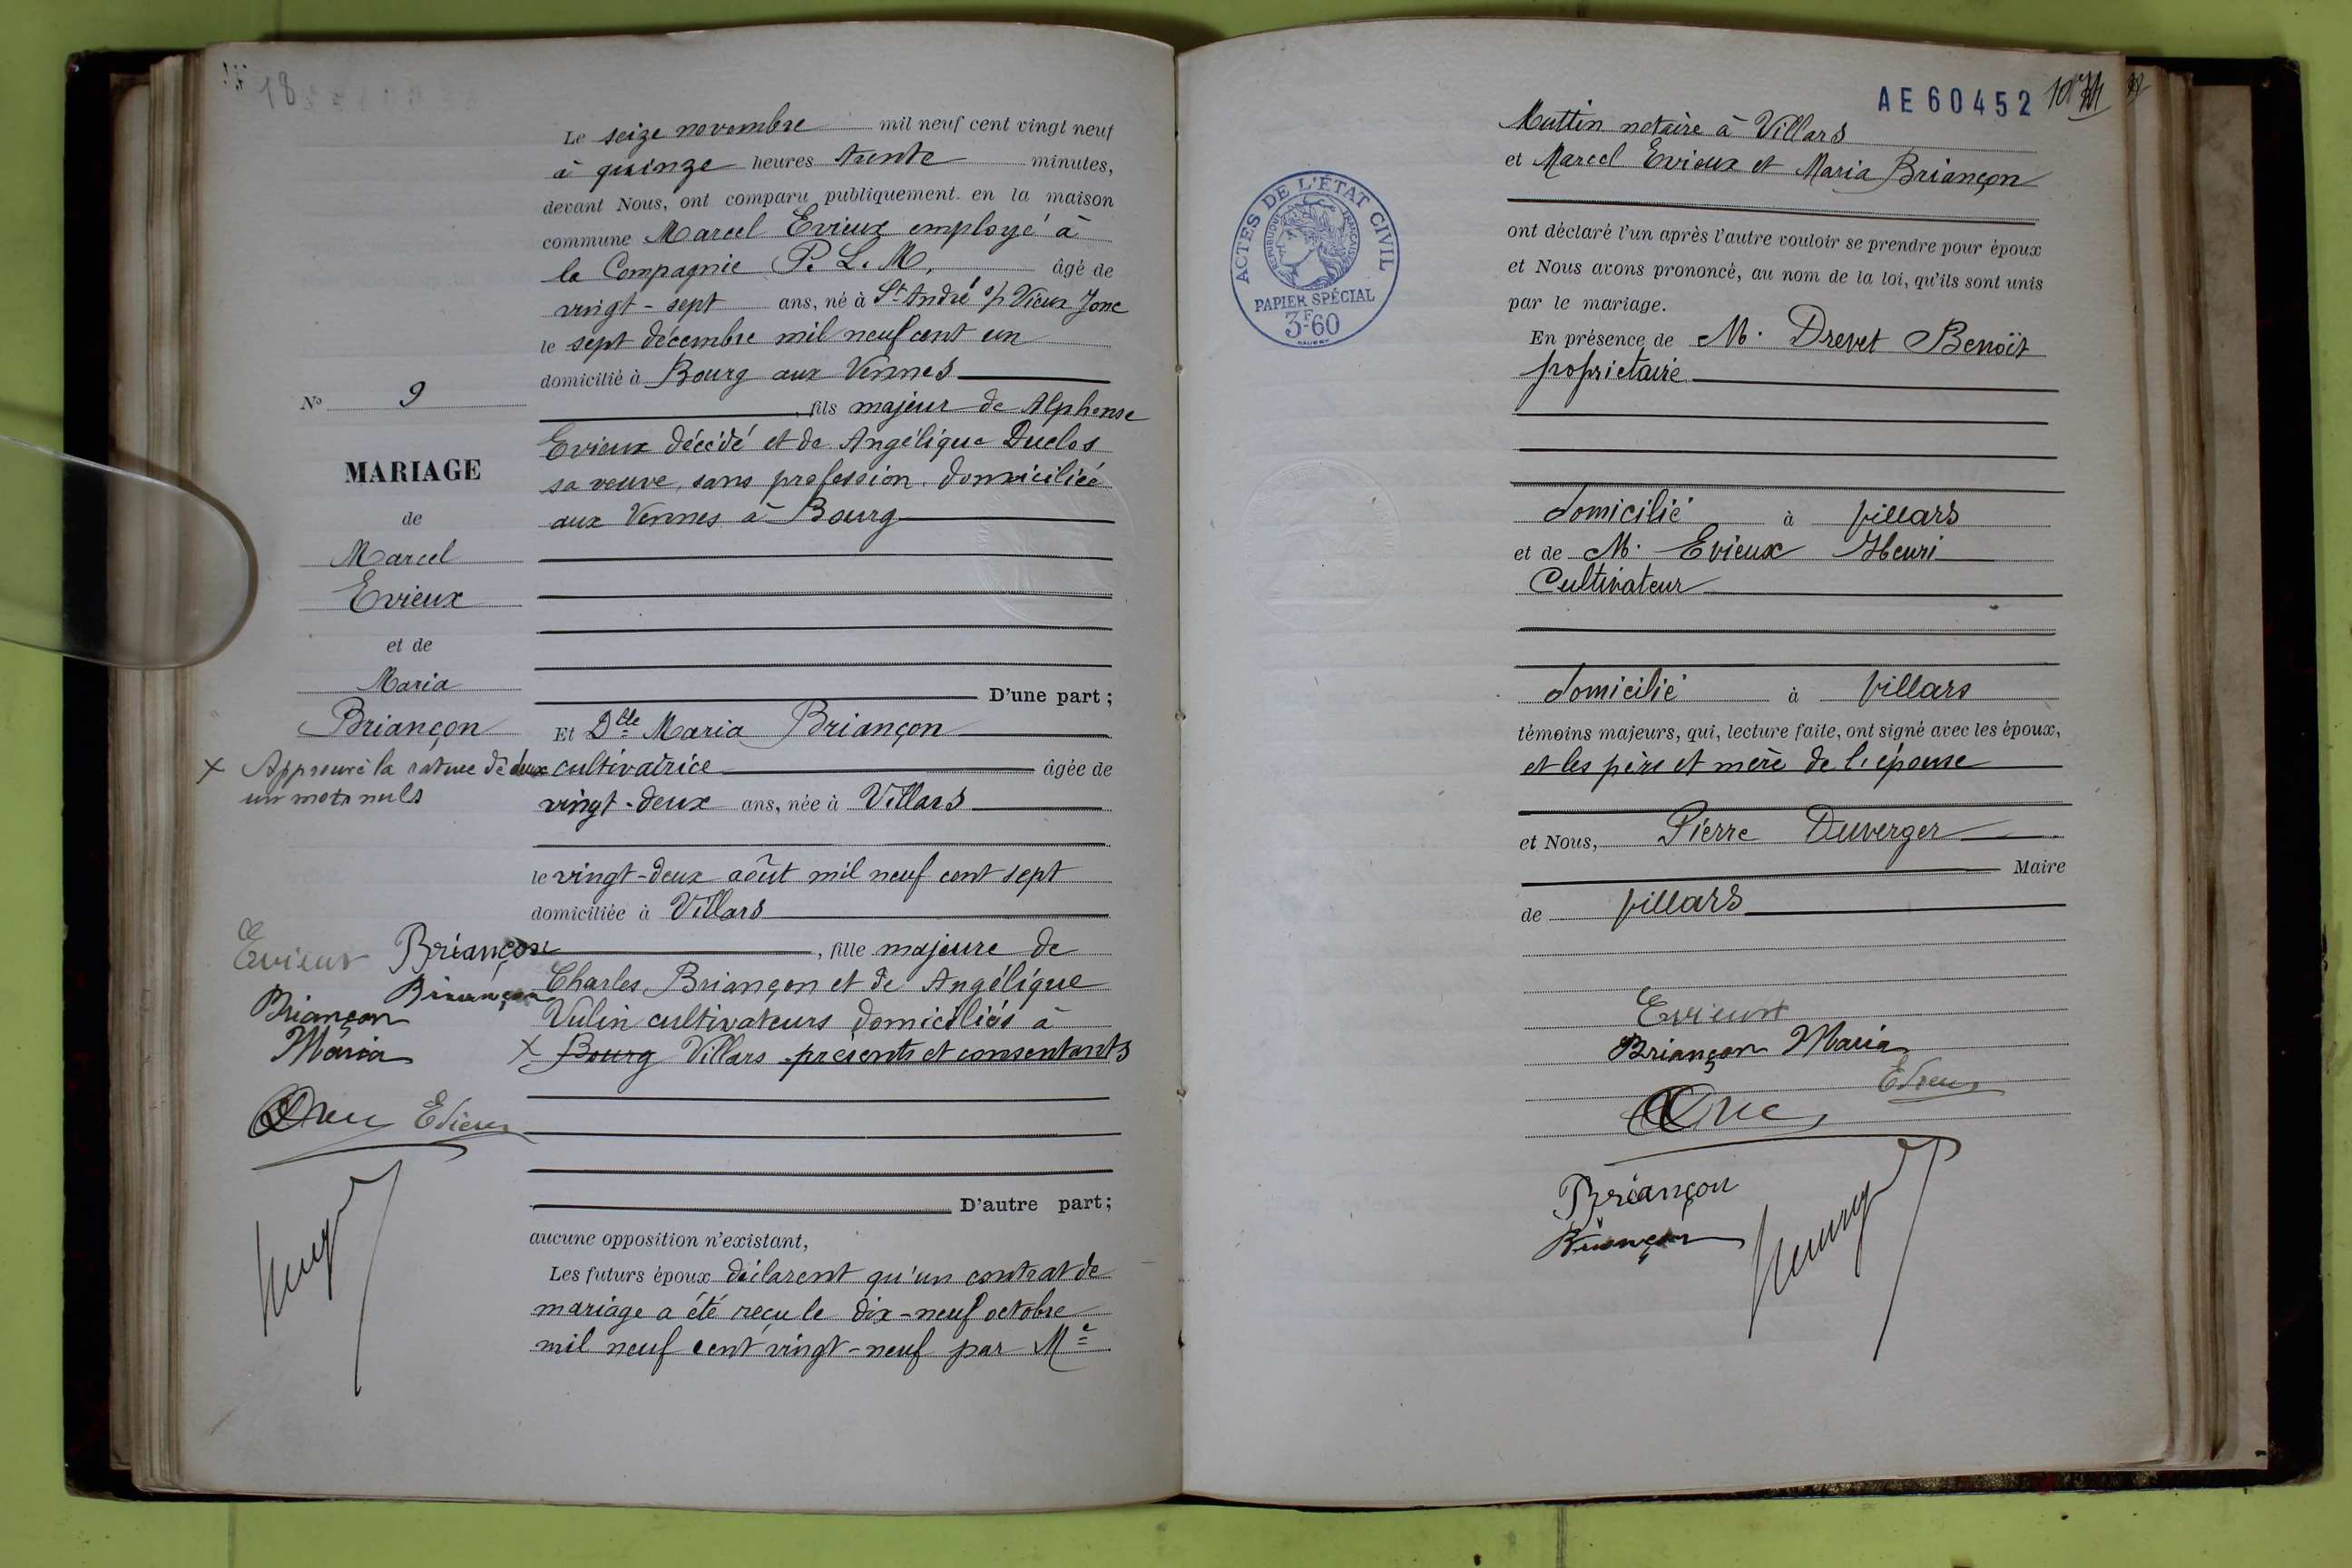 18
Le seize novembre mil neuf cent vingt neuf
à quinze heures trente minutes,
devant Nous, ont comparu publiquement en la maison
commune Marcel Evieux employé à
la Compagnie P. L. M. âgé de
vingt-sept ans, né à St André s/ Vieux Jonc
le sept décembre mil neuf cent un
domicilié à Bourg aux Vennes
, fils majeur de Alphonse
Evieux décédé et de Angélique Duclos
sa veuve, sans profession, domiciliée
aux Vennes à Bourg
D'une part ;
Et Dlle Maria Briançon
cultivatrice âgée de
vingt-deux ans, née à Villars
le vingt-deux août mil neuf cent sept
domiciliée à Villars
, fille majeure de
Charles Briançon et de Angélique
Vulin cultivateurs domiciliés à
x Bourg Villars présents et consentants
D'autre part ;
aucune opposition n'existant,
Les futurs époux déclarent qu'un contrat de
mariage a été reçu le dix-neuf octobre
mil neuf cent vingt-neuf par Me
No 9
MARIAGE
de
Marcel
Evieux
et de
Maria
Briançon
x Approuvé la rature de
un mots nuls
Evieux Briançon
Briançon
Briançon
Maria
Evieux
AE 60452
Muttin notaire à Villars
et Marcel Evieux et Maria Briançon
ACTES DE L'ÉTAT CIVIL
RÉPUBLIQUE FRANÇAISE
PAPIER SPÉCIAL
3F60
ont déclaré l'un après l'autre vouloir se prendre pour époux
et Nous avons prononcé, au nom de la loi, qu'ils sont unis
par le mariage.
En présence de M. Drevet Benoît
propriétaire
domicilié à Villars
et de M. Evieux Henri
Cultivateur
domicilié à Villars
témoins majeurs, qui, lecture faite, ont signé avec les époux,
et les père et mère de l'épouse
et Nous, Pierre Duverger
Maire
de Villars
Evieux
Briançon Maria
Evieux
Briançon
Briançon